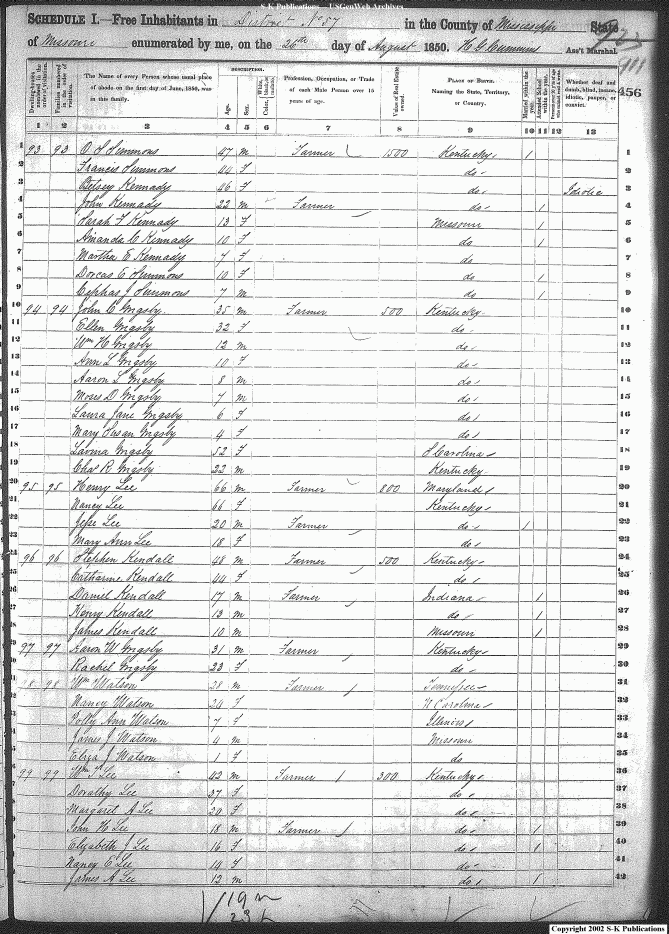 S-K Publications - USGenWeb Archives
SCHEDULE I.—Free Inhabitants in District No 57 in the County of Mississippi State
of Missouri enumerated by me, on the 26th day of August 1850. Ass't Marshal.
456
DESCRIPTION.
The Name of every Person whose usual place of abode on the first day of June, 1850, was in this family.
Age. Sex.
Profession, Occupation, or Trade of each Male Person over 15 years of age.
Value of Real Estate owned.
PLACE OF BIRTH. Naming the State, Territory, or Country.
Whether deaf and dumb, blind, insane, idiotic, pauper, or convict.
1 2 3 4 5 6 7 8 9 10 11 12 13
1 93 93 O S Summons 47 m Farmer 1500 Kentucky 1 1
2 Francis Summons 44 F do 2
3 Betsey Kennady 46 F do Idiotic 3
4 John Kennady 22 m Farmer do 1 4
5 Sarah F Kennady 13 F Missouri 1 5
6 Amanda C Kennady 10 F do 1 6
7 Martha E Kennady 7 F do 7
8 Dorcas E Summons 10 F do 1 8
9 Cephas J Summons 7 m do 1 9
10 94 94 John C Grigsby 35 m Farmer 500 Kentucky 10
11 Ellen Grigsby 32 F do 11
12 Wm H Grigsby 12 m do 12
13 Ann L Grigsby 10 F do 13
14 Aaron L Grigsby 8 m do 14
15 Moses D Grigsby 7 m do 15
16 Laura Jane Grigsby 6 F do 16
17 Mary Susan Grigsby 4 F do 17
18 Lavina Grigsby 52 F S Carolina 18
19 Chas R Grigsby 22 m Kentucky 19
20 95 95 Henry Lee 66 m Farmer 800 Maryland 20
21 Nancy Lee 66 F Kentucky 21
22 Jesse Lee 20 m Farmer do 1 22
23 Mary Ann Lee 18 F do 23
24 96 96 Stephen Kendall 48 m Farmer 500 Kentucky 24
25 Catharine Kendall 44 F do 25
26 Daniel Kendall 17 m Farmer Indiana 1 26
27 Henry Kendall 13 m do 1 27
28 James Kendall 10 m Missouri 1 28
29 97 97 Aaron W Grigsby 31 m Farmer Kentucky 29
30 Rachel Grigsby 23 F do 30
31 98 98 Wm Watson 28 m Farmer Tennessee 31
32 Nancy Watson 24 F N Carolina 32
33 Polly Ann Watson 7 F Illinois 33
34 James J Watson 4 m Missouri 34
35 Eliza J Watson 1 F do 35
36 99 99 Wm T Lee 42 m Farmer 300 Kentucky 36
37 Dorathy Lee 37 F do 37
38 Margaret A Lee 20 F do 38
39 John H Lee 18 m Farmer do 1 39
40 Elizabeth J Lee 16 F do 1 40
41 Nancy E Lee 14 F do 41
42 James A Lee 12 m do 1 42
19 m
23 F
Copyright 2002 S-K Publications